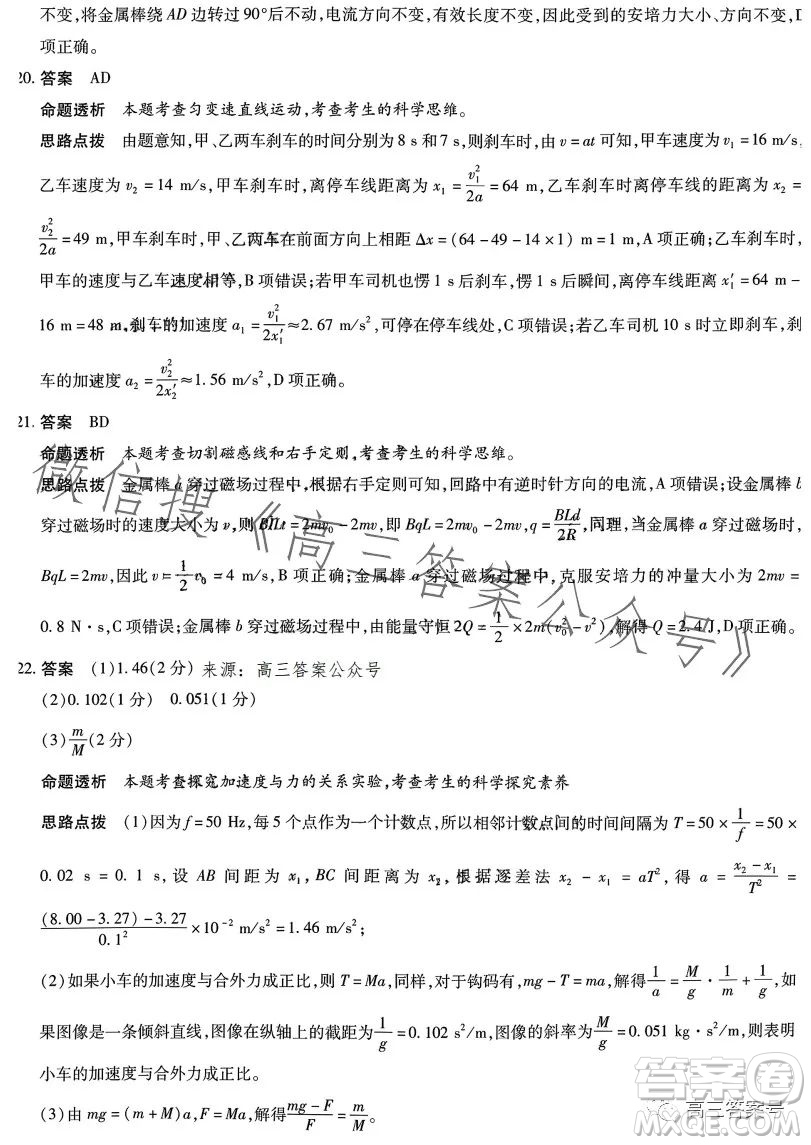 不变,将金属棒绕 AD 边转过 90°后不动,电流方向不变,有效长度不变,因此受到的安培力大小、方向不变,D
项正确。
20. 答案 AD
命题透析 本题考查匀变速直线运动,考查考生的科学思维。
思路点拨 由题意知,甲、乙两车刹车的时间分别为 8 s 和 7 s,则刹车时,由 v=at 可知,甲车速度为 v₁=16 m/s,
乙车速度为 v₂=14 m/s,甲车刹车时,离停车线距离为 x₁=v₁²/2a=64 m,乙车刹车时离停车线的距离为 x₂=
v₂²/2a=49 m,甲车刹车时,甲、乙两车在前面方向上相距 Δx=(64-49-14×1) m=1 m,A 项正确;乙车刹车时,
甲车的速度与乙车速度相等,B 项错误;若甲车司机也愣 1 s 后刹车,愣 1 s 后瞬间,离停车线距离为 x₁′=64 m-
16 m=48 m,刹车的加速度 a₁=v₁²/2x₁′≈2.67 m/s²,可停在停车线处,C 项错误;若乙车司机 10 s 时立即刹车,刹
车的加速度 a₂=v₂²/2x₂′≈1.56 m/s²,D 项正确。
21. 答案 BD
命题透析 本题考查切割磁感线和右手定则,考查考生的科学思维。
思路点拨 金属棒 a 穿过磁场过程中,根据右手定则可知,回路中有逆时针方向的电流,A 项错误;设金属棒 b
穿过磁场时的速度大小为 v,则 BILt=2mv₀-2mv,即 BqL=2mv₀-2mv,q=BLd/2R,同理,当金属棒 a 穿过磁场时,
BqL=2mv,因此 v=1/2 v₀=4 m/s,B 项正确;金属棒 a 穿过磁场过程中,克服安培力的冲量大小为 2mv=
0.8 N·s,C 项错误;金属棒 b 穿过磁场过程中,由能量守恒 2Q=1/2×2m(v₀²-v²),解得 Q=2.4 J,D 项正确。
22. 答案 (1)1.46(2 分) 来源:高三答案公众号
(2)0.102(1 分) 0.051(1 分)
(3)m/M(2 分)
命题透析 本题考查探究加速度与力的关系实验,考查考生的科学探究素养
思路点拨 (1)因为 f=50 Hz,每 5 个点作为一个计数点,所以相邻计数点间的时间间隔为 T=50×1/f=50×
0.02 s=0.1 s,设 AB 间距为 x₁,BC 间距离为 x₂,根据逐差法 x₂-x₁=aT²,得 a=(x₂-x₁)/T²=
((8.00-3.27)-3.27)/0.1²×10⁻² m/s²=1.46 m/s²;
(2)如果小车的加速度与合外力成正比,则 T=Ma,同样,对于钩码有,mg-T=ma,解得1/a=M/g·1/m+1/g,如
果图像是一条倾斜直线,图像在纵轴上的截距为1/g=0.102 s²/m,图像的斜率为M/g=0.051 kg·s²/m,则表明
小车的加速度与合外力成正比。
(3)由 mg=(m+M)a,F=Ma,解得(mg-F)/F=m/M。
微信搜《高三答案公众号》
答案圈
高三答案号
MXQE.COM